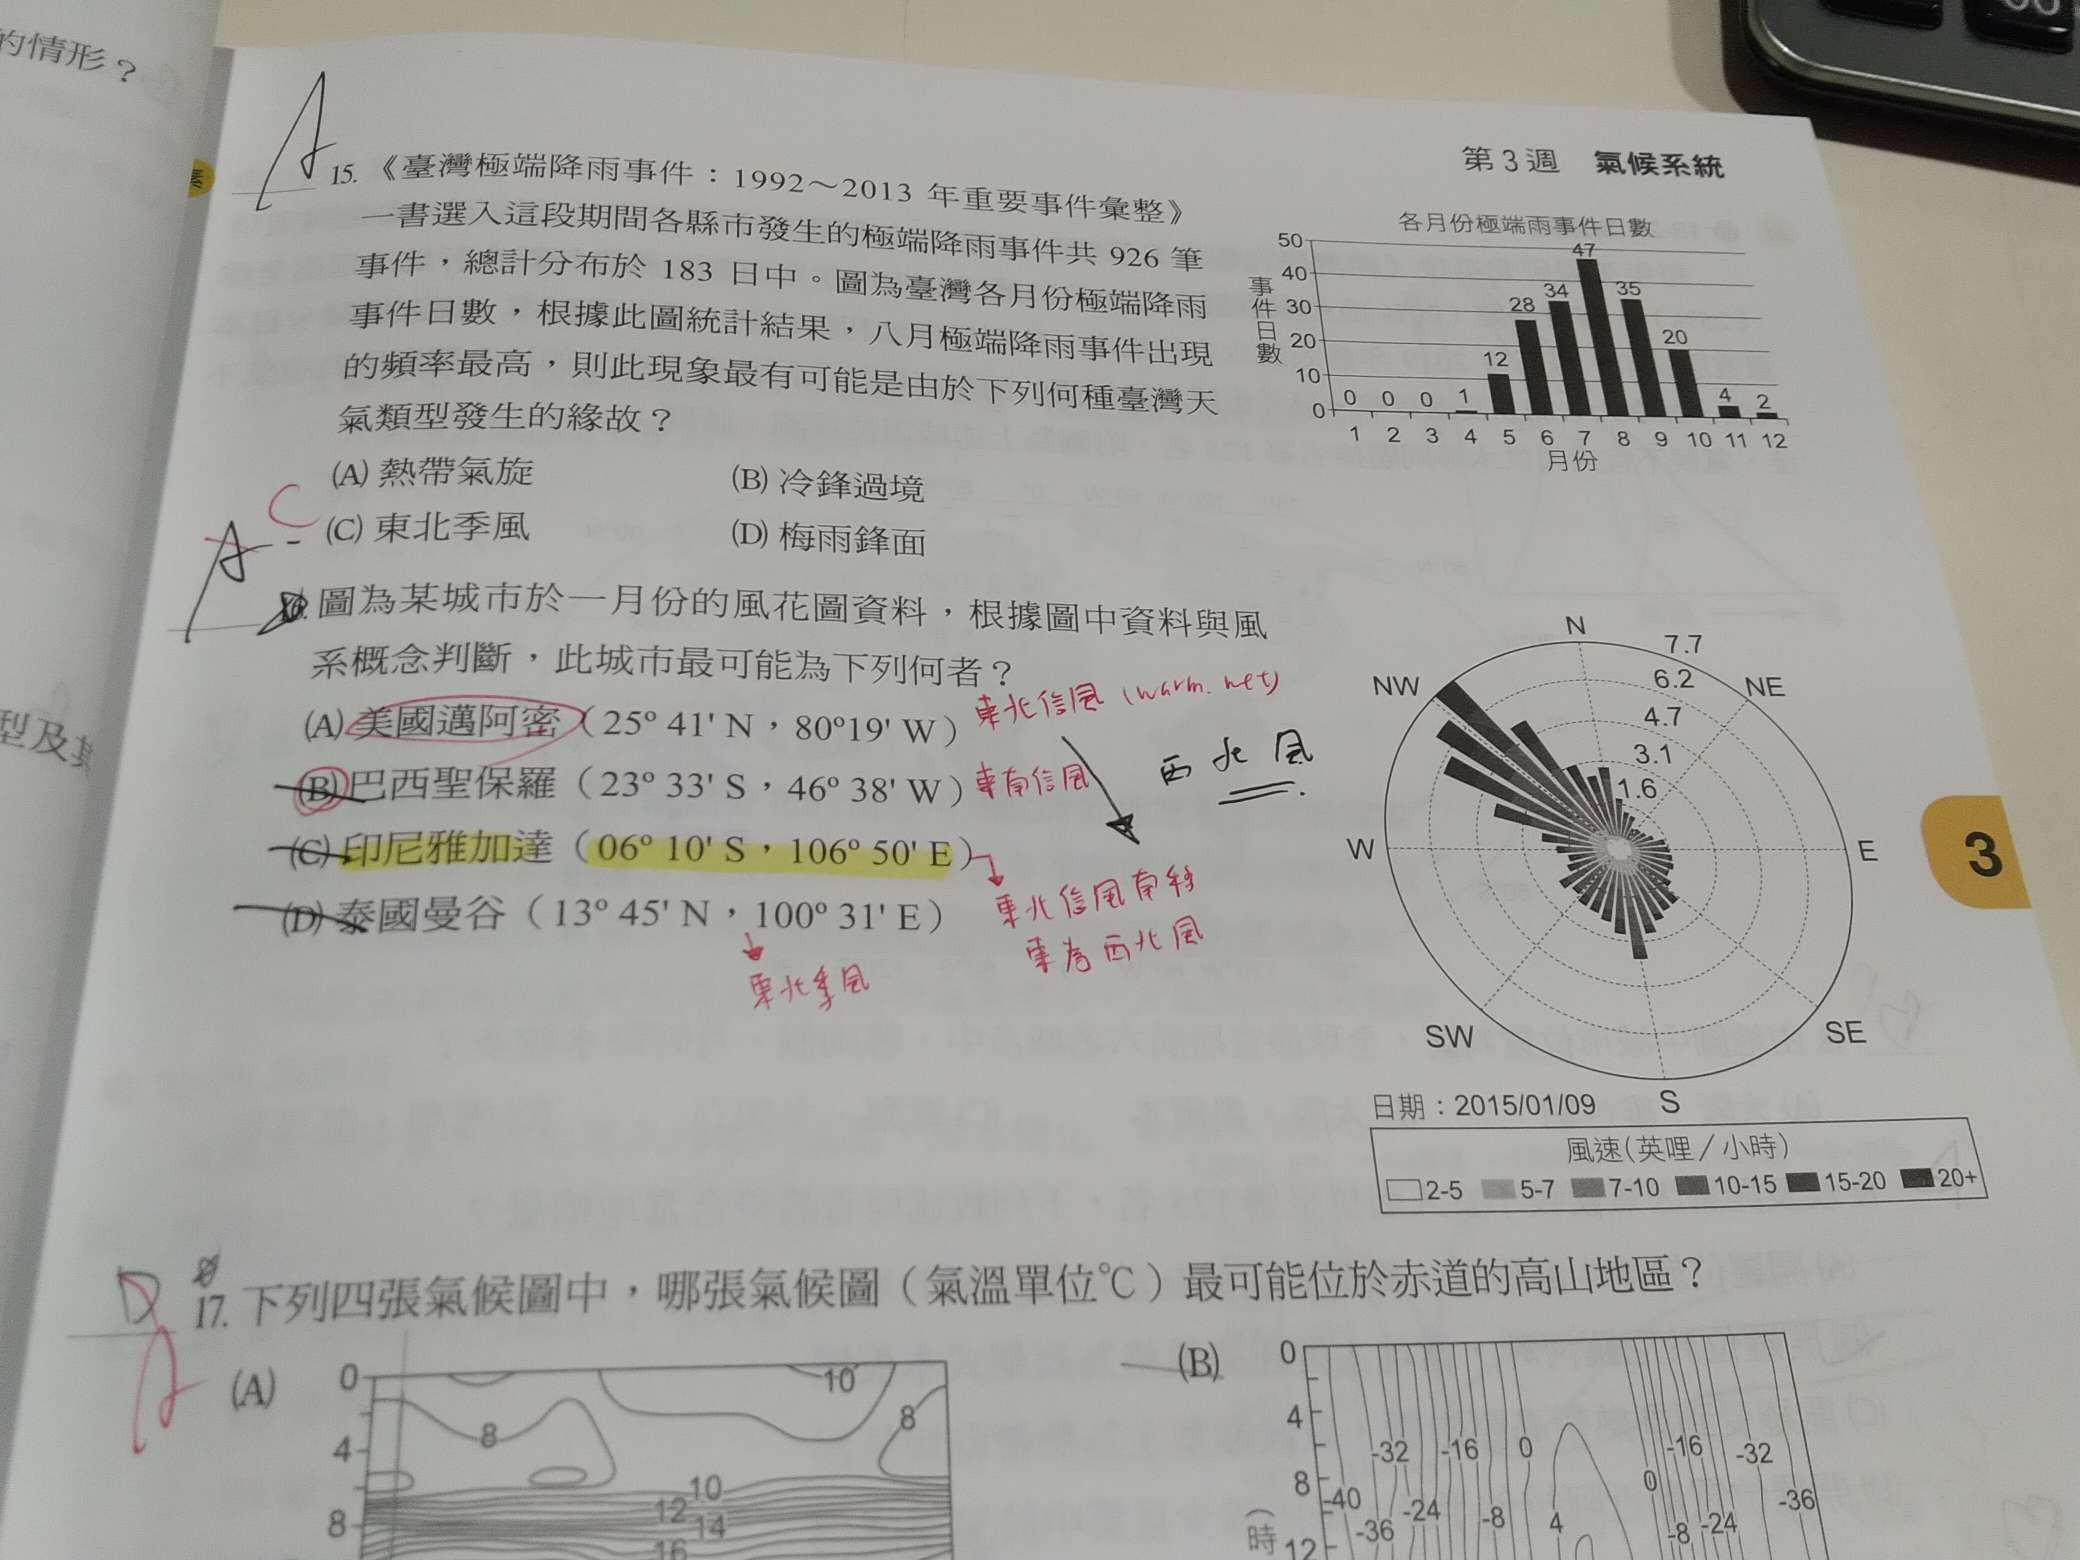 的情形？
第3週 氣候系統
A
15.《臺灣極端降雨事件：1992～2013 年重要事件彙整》
一書選入這段期間各縣市發生的極端降雨事件共 926 筆
事件，總計分布於 183 日中。圖為臺灣各月份極端降雨
事件日數，根據此圖統計結果，八月極端降雨事件出現
的頻率最高，則此現象最有可能是由於下列何種臺灣天
氣類型發生的緣故？
(A) 熱帶氣旋
(B) 冷鋒過境
(C) 東北季風
(D) 梅雨鋒面
各月份極端雨事件日數
事件日數
50
40
30
20
10
0
0 0 0 1 12 28 34 47 35 20 4 2
1 2 3 4 5 6 7 8 9 10 11 12
月份
C
A
圖為某城市於一月份的風花圖資料，根據圖中資料與風
系概念判斷，此城市最可能為下列何者？
(A) 美國邁阿密（25° 41' N，80°19' W）
東北信風 (warm. wet)
(B) 巴西聖保羅（23° 33' S，46° 38' W）
東南信風
西北風
(C) 印尼雅加達（06° 10' S，106° 50' E）
東北信風南移
東為西北風
(D) 泰國曼谷（13° 45' N，100° 31' E）
東北季風
N
NE
E
SE
S
SW
W
NW
7.7
6.2
4.7
3.1
1.6
日期：2015/01/09
風速(英哩／小時)
2-5 5-7 7-10 10-15 15-20 20+
3
型及其
D
A
17. 下列四張氣候圖中，哪張氣候圖（氣溫單位℃）最可能位於赤道的高山地區？
(A)
0
4
8
10
8
8
10
12
14
16
(B)
0
4
8
12
(時
-32 -16 0 -16 -32
-40 -24 0 -36
-36 -8 4 -8 -24